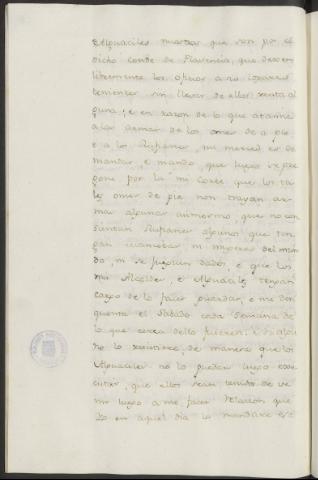 Alguaciles nuestros que son por el
dicho conde de Plasencia, que dexen
libremente los oficios a los
tenientes sin llevar de ellos renta al
guna; e en razon de lo que atañe
a las armas de los omes de a pie
e a los Rufianes, mi merced es de
mandar, e mando que luego se pre
gone por la mi Corte que los ta
les omes de pie non trayan ar
mas algunas
sientan Rufianes algunos que ten
gan mancebas ni mugeres del mun
do, ni se jueguen dados, e que los
mis Alcaldes, e Alguaciles tengan
cargo de lo facer guardar, e me den
quenta el Sabado cada Semana de
lo que cerca dello ficieren: e si algu
no lo resistiere, de manera que los
Alguaciles no lo puedan luego exe
cutar, que ellos sean tenidos de ve
nir luego a me facer relacion que
Yo en aquel dia lo mandare